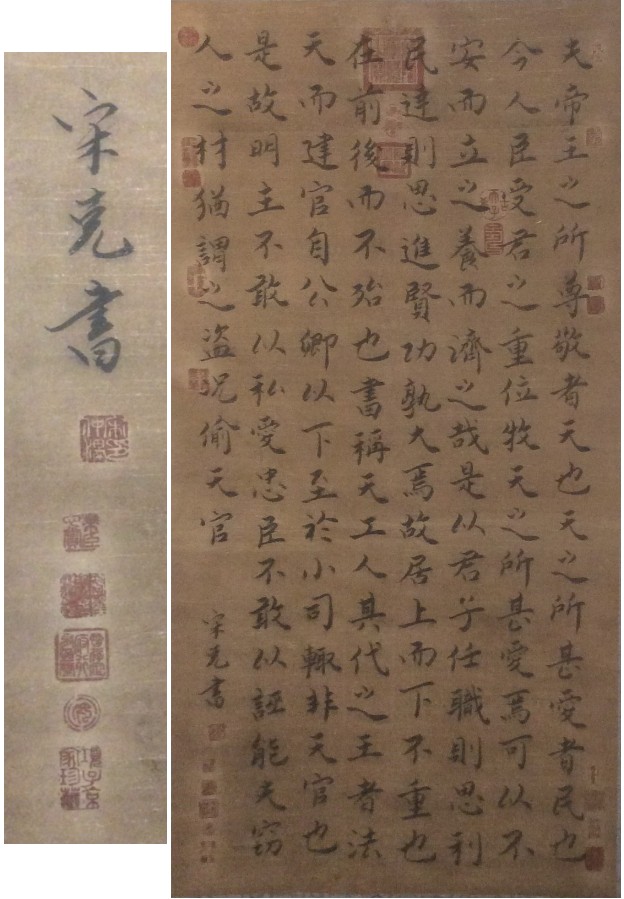 夫帝王之所尊敬者天也天之所甚愛者民也
今人臣受君之重位牧天之所甚愛焉可以不
安而立之養而濟之哉是以君子任職則思利
民達則思進賢功孰大焉故居上而下不重也
在前後而不殆也書稱天工人其代之王者法
天而建官自公卿以下至於小司輙非天官也
是故明主不敢以私愛忠臣不敢以誣能夫窃
人之材猶謂之盗况偷天官
宋克書
宋克書
項子京
家珍藏